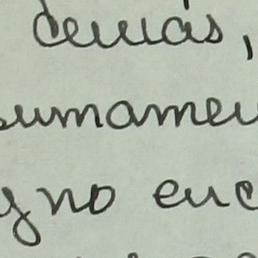 demás,
sumamen
y no enc